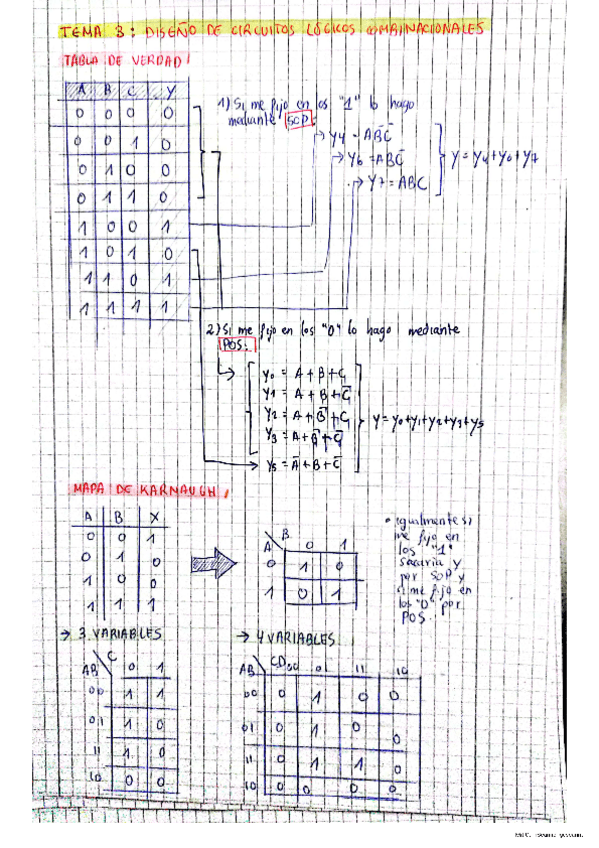 TEMA 3: DISEÑO DE CIRCUITOS LÓGICOS COMBINACIONALES
TABLA DE VERDAD
A B C Y
0 0 0 0
0 0 1 0
0 1 0 0
0 1 1 0
1 0 0 1
1 0 1 0
1 1 0 1
1 1 1 1
1) Si me fijo en los "1" lo hago
mediante SOP:
Y4 = AB̅C̅
Y6 = ABC̅
Y7 = ABC
Y = Y4 + Y6 + Y7
2) Si me fijo en los "0" lo hago mediante
POS:
Y0 = A + B + C
Y1 = A + B + C̅
Y2 = A + B̅ + C
Y3 = A + B̅ + C̅
Y5 = A̅ + B + C̅
Y = Y0+Y1+Y2+Y3+Y5
MAPA DE KARNAUGH
A B X
0 0 1
0 1 0
1 0 0
1 1 1
B
A 0 1
0 1 0
1 0 1
• igualmente si
me fijo en
los "1"
sacaría Y
por SOP y
si me fijo en
los "0" por
POS.
→ 3 VARIABLES
C
AB 0 1
00 1 1
01 1 0
11 1 0
10 0 0
→ 4 VARIABLES
AB CD 00 01 11 10
00 0 1 0 0
01 0 1 0 0
11 0 1 1 0
10 0 0 0 0